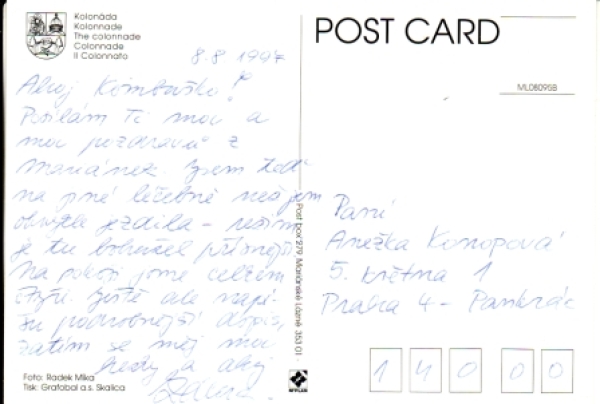 Kolonáda
Kolonnade
The colonnade
Colonnade
Il Colonnato
POST CARD
ML08095B
8.8. 1997
Ahoj
Posílám Ti moc a
moc pozdravů z
Mariánek. Jsem teď
na jiné léčebně než jsem
obvykle jezdila - režim
je tu bohužel přísnější.
Na pokoji jsme celkem
čtyři. Ještě ale napí-
šu podrobnější dopis,
zatím se měj moc
hezky a ahoj
Paní
Anežka Konopová
5. května 1
Praha 4 - Pankrác
140 00
Post box 279, Mariánské Lázně 353 01
Foto: Radek Mika
Tisk: Grafobal a.s. Skalica